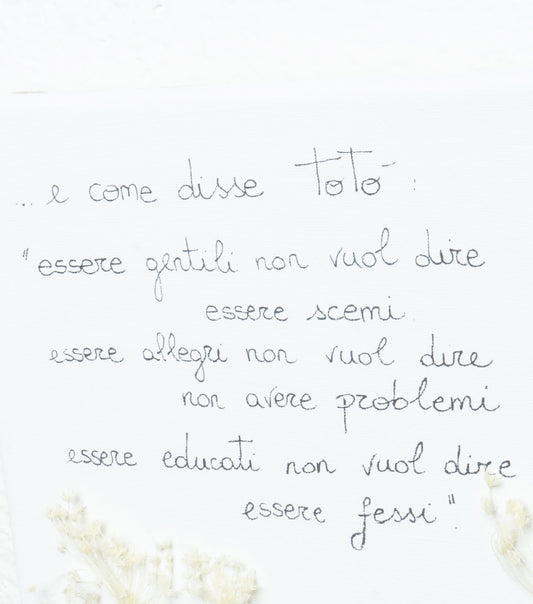 ... e come disse Totò :
"essere gentili non vuol dire
essere scemi
essere allegri non vuol dire
non avere problemi
essere educati non vuol dire
essere fessi".